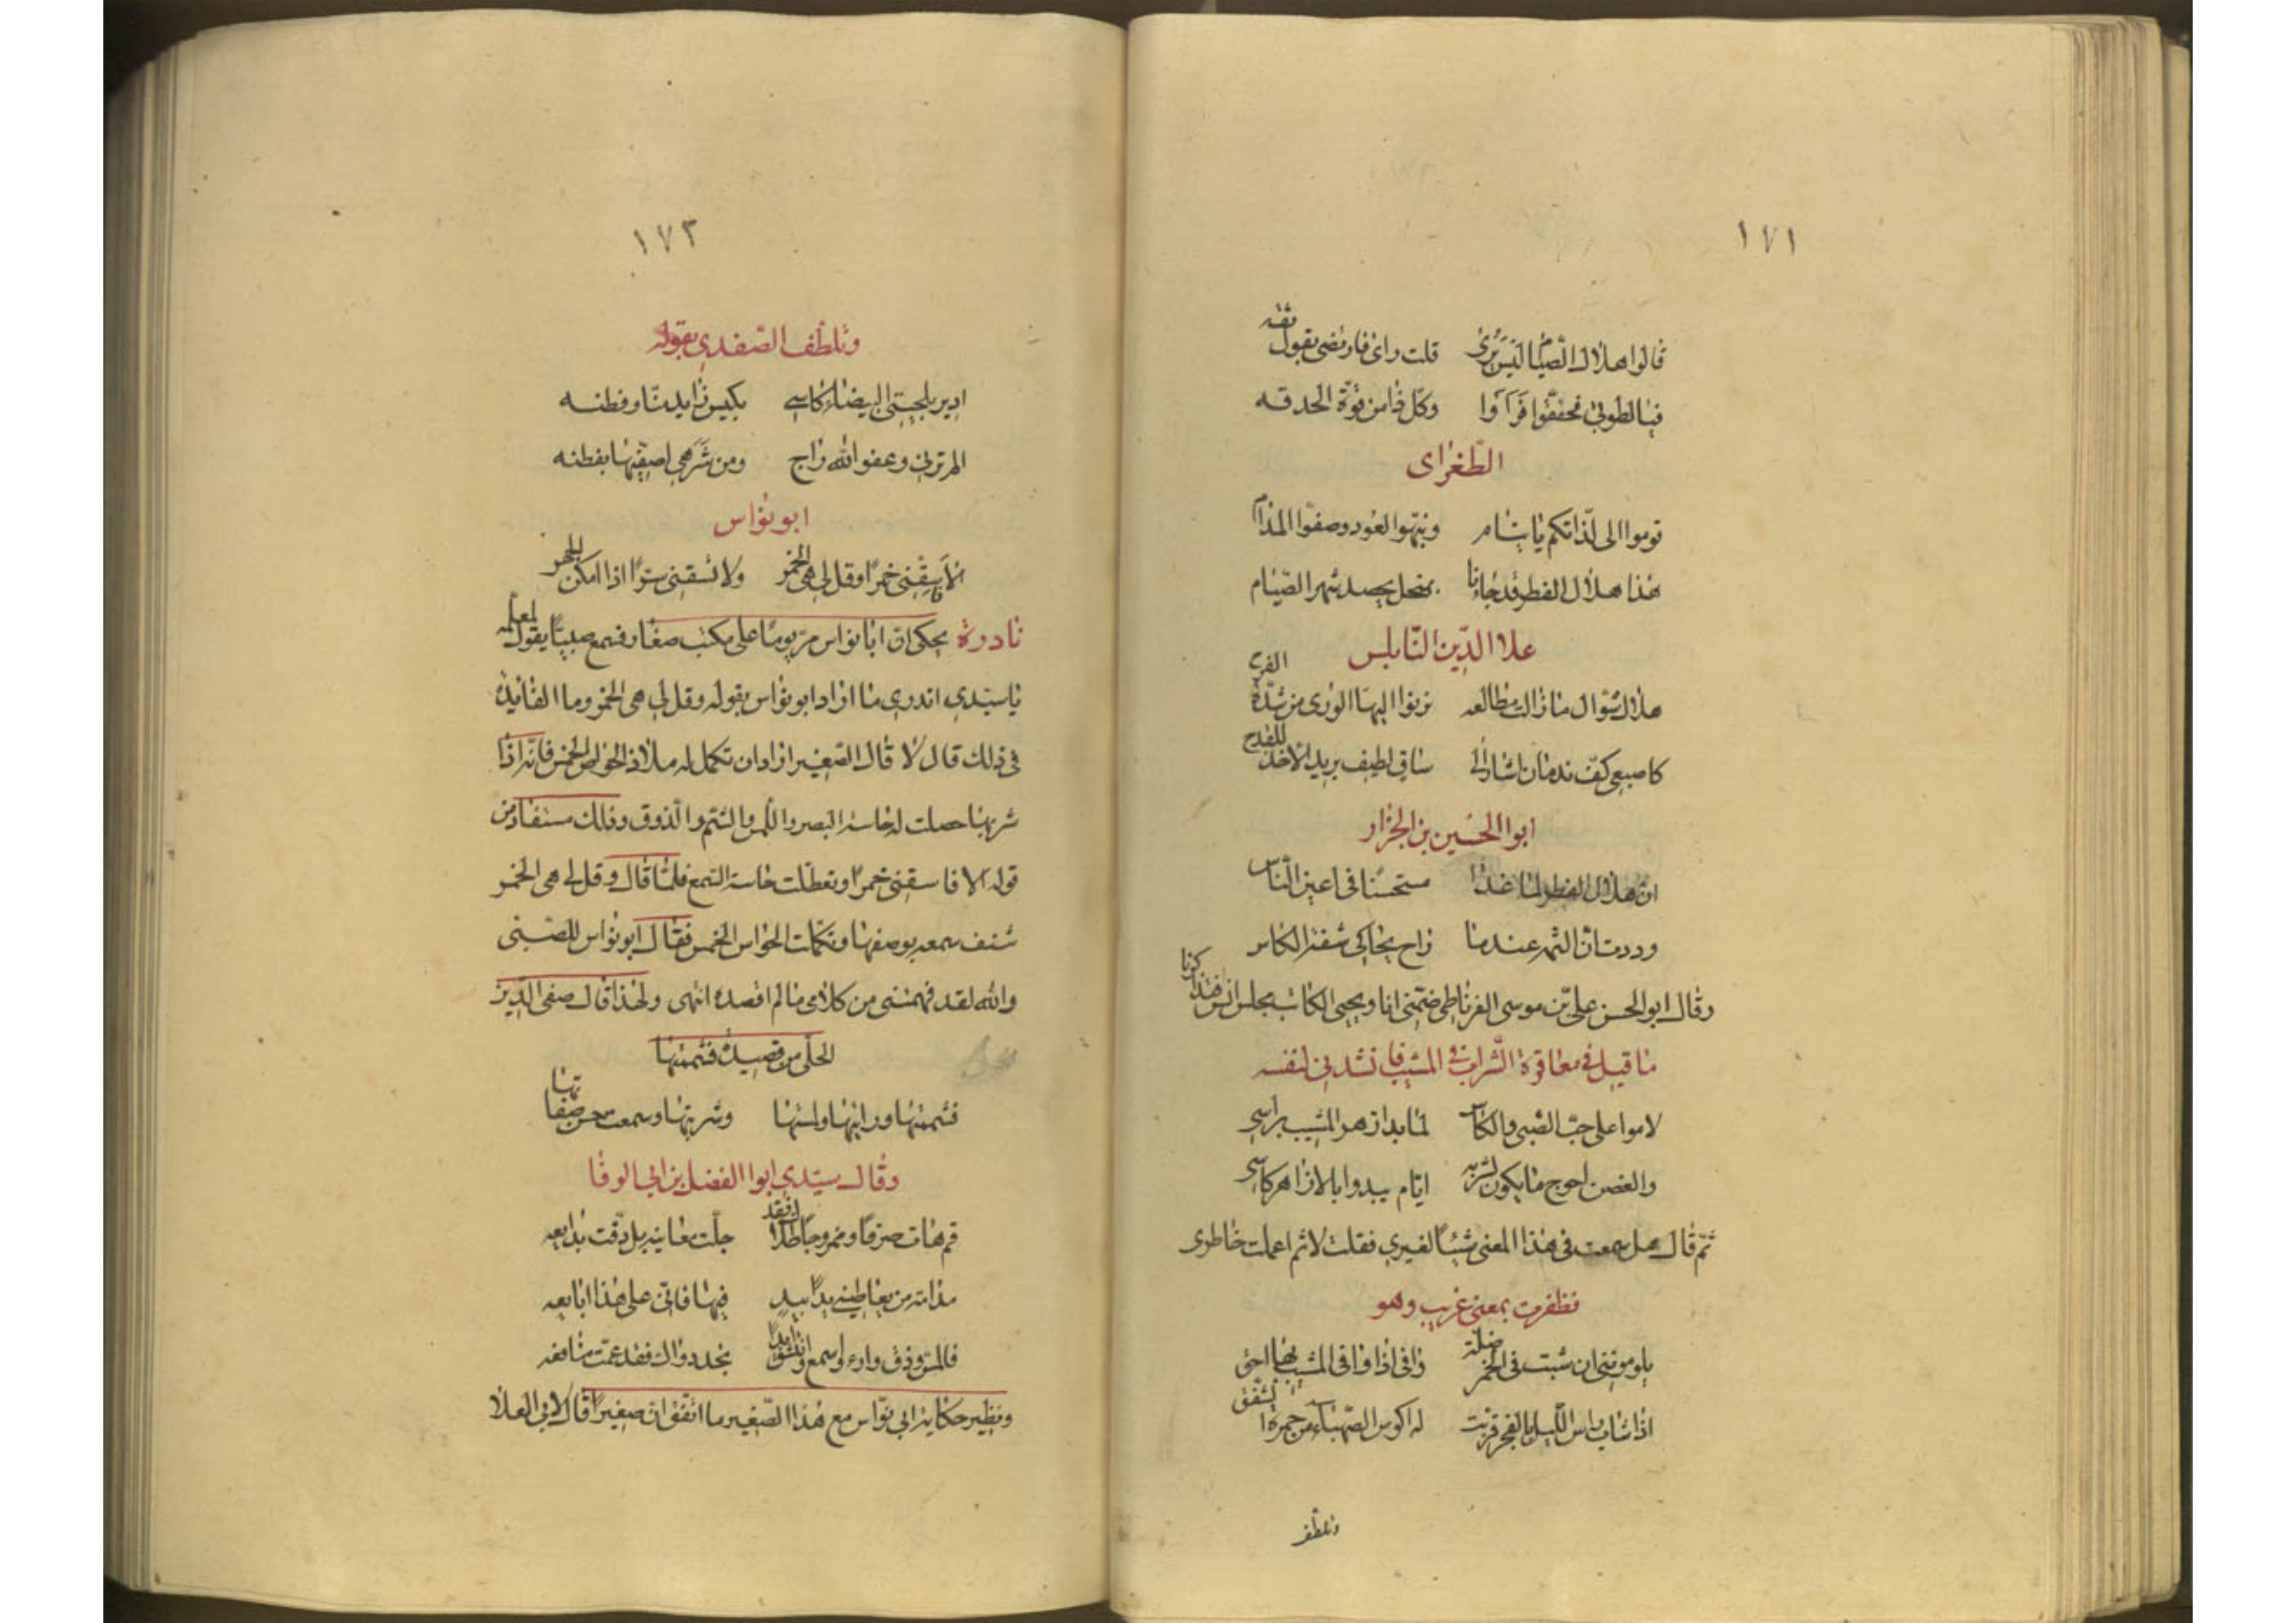 ١٧١
قالوا هلال الصيام ليس يرى قلت رآى فارتضى بقول ثقه
فيا لطوبى فحققوا فرآوا وكل ذا من قوة الحدقه
الطغراى
قوموا الى لذاتكم يا نيام ونبهوا العود وصفوا المدام
هذا هلال الفطر قد جاءنا بمنجل يحصد شهر الصيام
علا الدين النابلس
هلال شوال ما زالت مطالعه يرنوا اليها الورى من شدة الفرح
كاصبعى كف ندمان اشار الى ساق لطيف يريد الاخذ للقدح
ابوا الحسين بن الجزار
ان هلال الفطر لما غدا مستحسنا فى اعين الناس
وددت ان الشهر عندما راح يحاكى شفة الكاس
وقال ابو الحسن على بن موسى الغرناطى ضمنى انا ويحيى الكاتب مجلس انس فتذاكرنا
ما قيل فى معاقرة الشراب فى المشيب فانشدنى لنفسه
لاموا على حب الصبى والكاس لما بدا زهر المشيب براسى
والغصن احوج ما يكون لشربه ايام يبدوا بالازاهر كاسى
ثم قال هل سمعت فى هذا المعنى شيئا لغيرى فقلت لا ثم اعملت خاطرى
فظفرت بمعنى غريب وهو
يلوموننى ان شبت فى الخمر ضلة وانى اذا وافى المشيب بها احق
اذا شاب راس الليل بالفجر قربت له اكوس الصهباء من حمرة الشفق
وتلطف
١٧٣
وتلطف الصفدى بقوله
ادير بلحيتى البيضاء كاسى بكيس زايد بنا وفطنه
الم ترنى وعفو الله راج ومن شرهى اصفيها بقطنه
ابو نواس
الا فاسقنى خمرا وقل لى هى الخمر ولا تسقنى سرا اذا امكن الجهر
نادرة يحكى ان ابا نواس مر يوما على مكتب صغار فسمع صبيا يقول لمعلمه
يا سيدى اتدرى ما اراد ابو نواس بقوله وقل لى هى الخمر وما الفايدة
فى ذلك قال لا قال الصغير اراد ان تكمل له ملاذ الحواس الخمس فانه اذا
شربها حصلت له حاسة البصر واللمس والشم والذوق وذلك مستفاد من
قوله الا فاسقنى خمرا وتعطلت حاسة السمع فلما قال وقل لى هى الخمر
شنف سمعه بوصفها وتكملت الحواس الخمس فقال ابو نواس للصبى
والله لقد فهمتنى من كلامى ما لم اقصده انتهى ولهذا قال صفى الدين
الحلى من قصيدة فشممتها
فشممتها ورايتها ولمستها وشربتها وسمعت حسن صفاتها
وقال سيدى ابوا الفضل بن ابى الوفا
قم هات صرفا ومزوجا طلا فلقد جلت معانيه بل دقت بدايعه
مدامة من يعاطينى يدا بيد فيها فانى على هذا ابايعه
فالمس وذق واره واسمع وانشق ابدا تجد دواك فقد عمت منافعه
ونظير حكاية ابى نواس مع هذا الصغير ما اتفق ان صغيرا قال لابى العلا